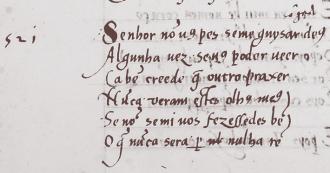 521 Senhor no uꝯ pes se me guysar deꝯ
Algunha uez de uꝯ poder ueer
Ca bẽ creede q̃ outro prazer
Nũca ueram estes olhꝯ meꝯ
Se nõ se mi uos fezessedes bẽ
O q̃ nũca sera ꝑ nulha rẽ